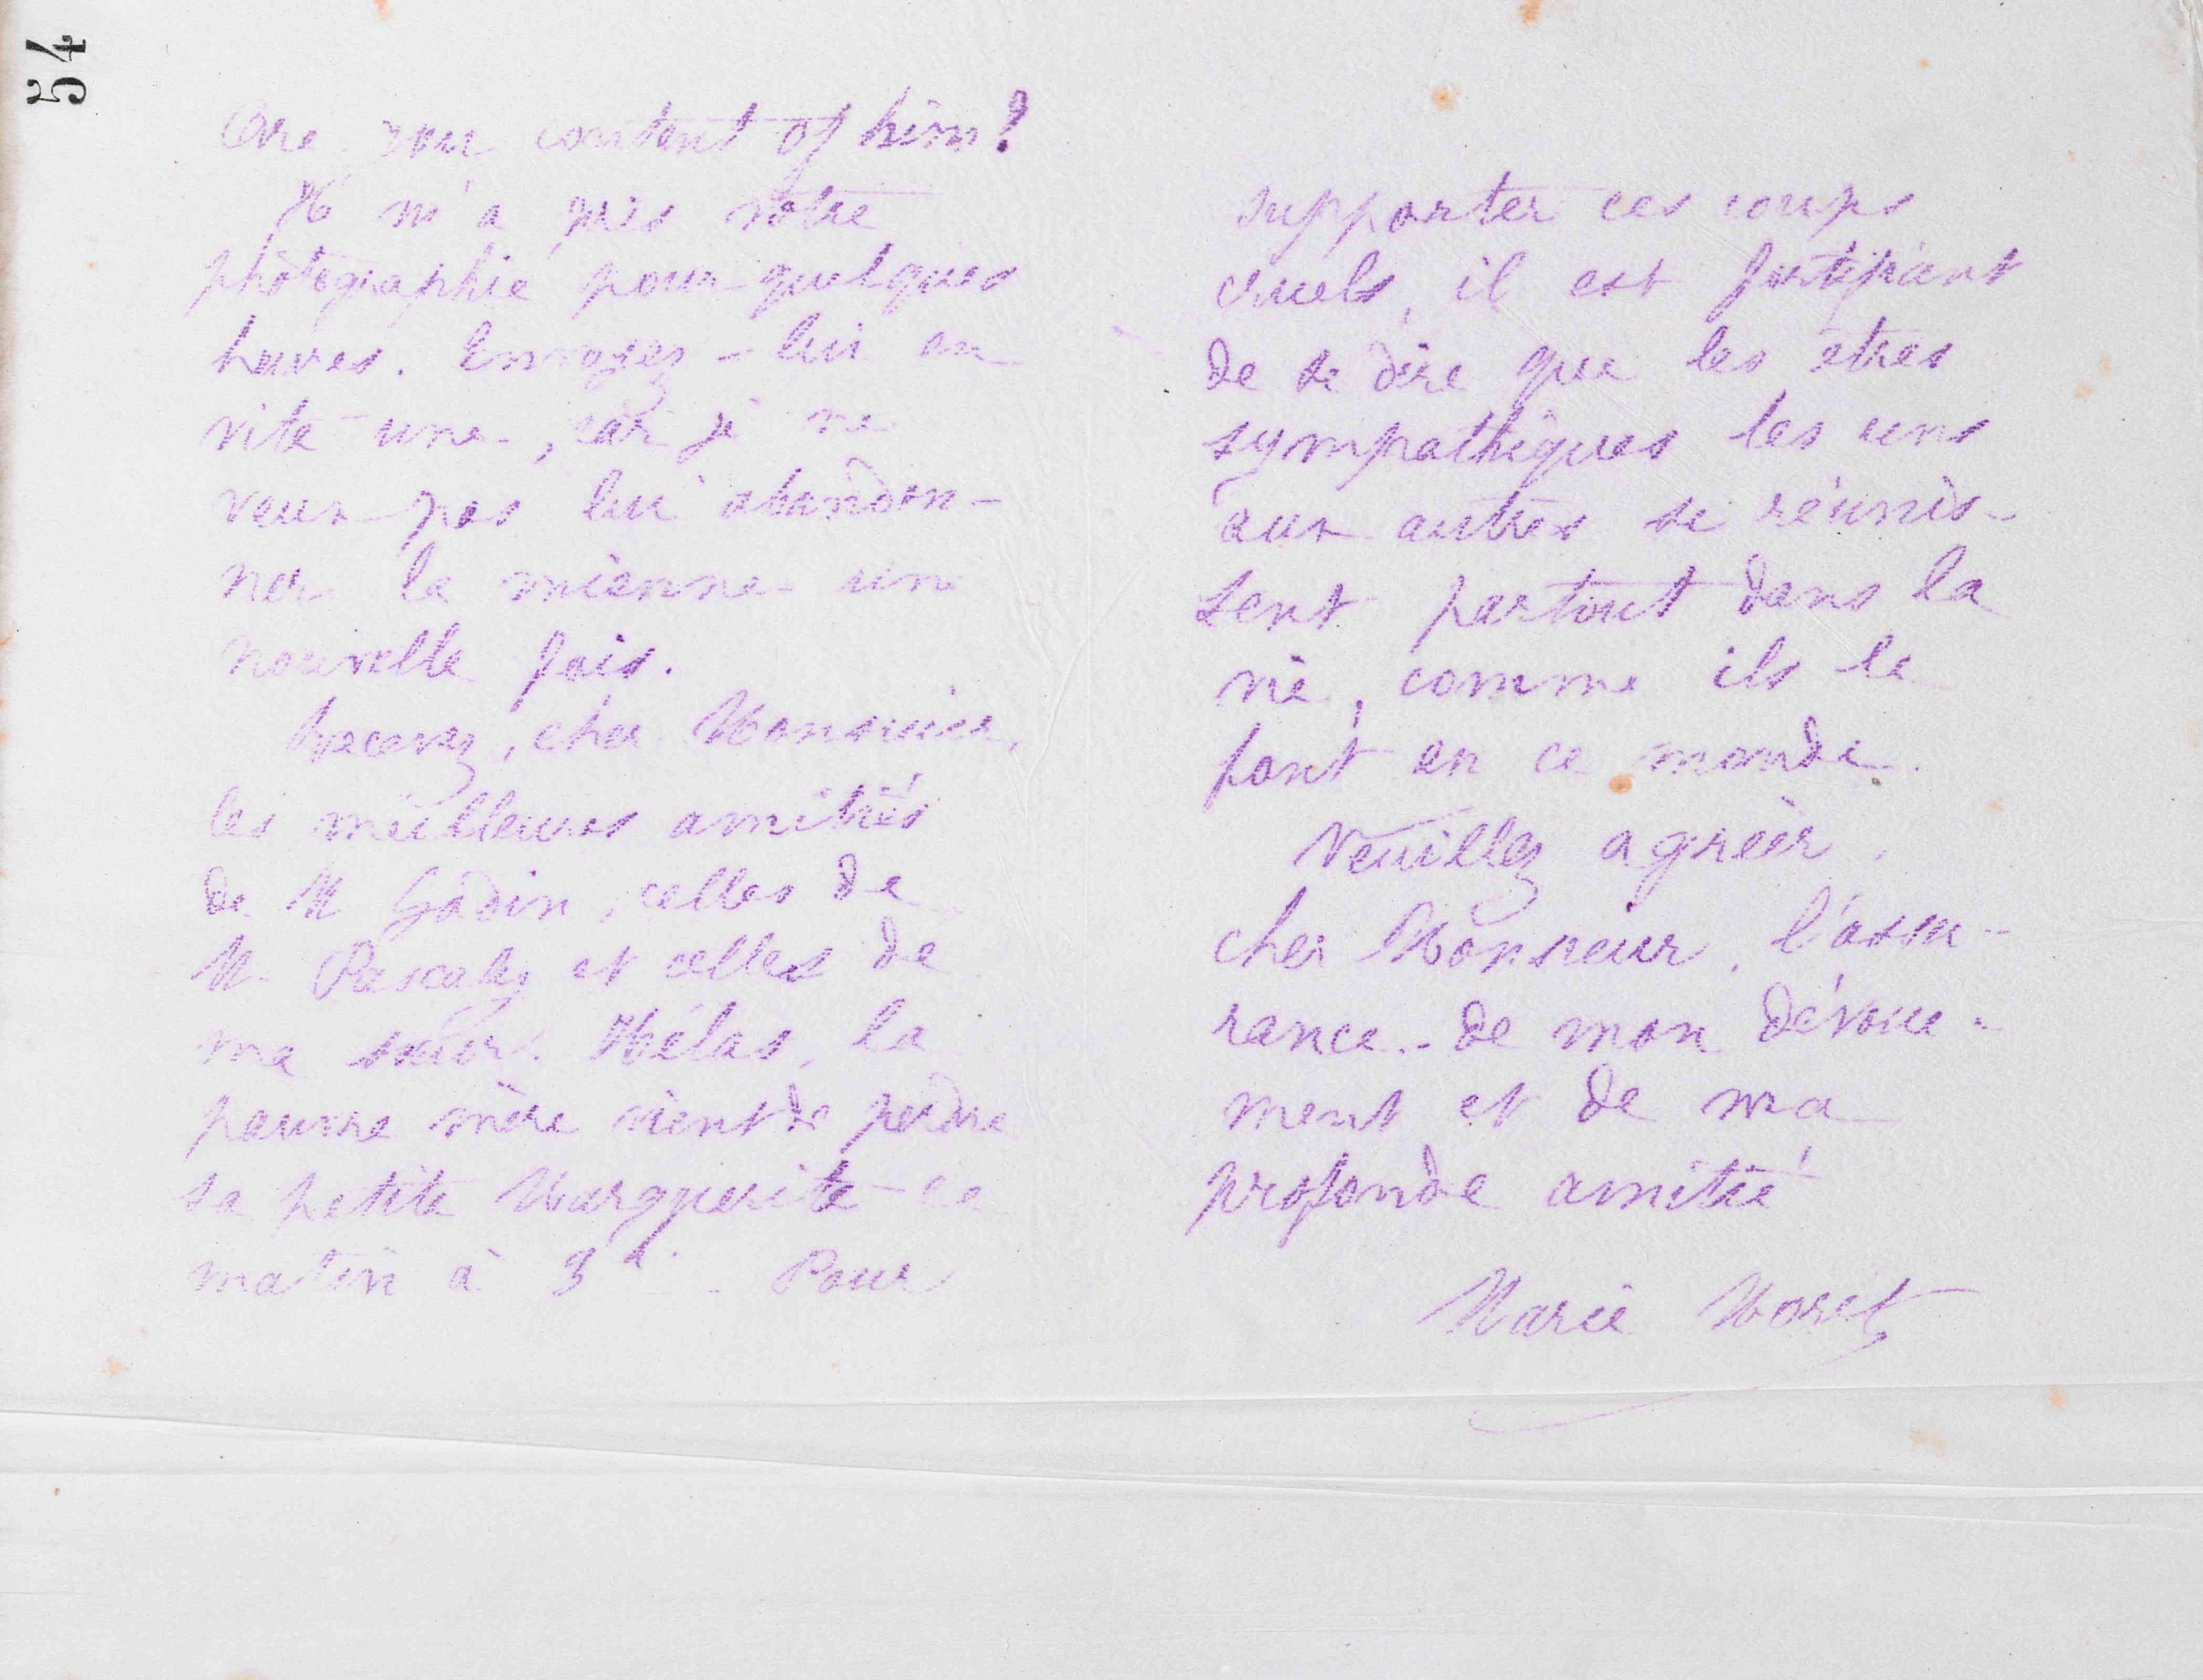 54
Are you content of him?
Il m'a pris votre
photographie pour quelques
heures. Envoyez-lui en
vite une, car je ne
veux pas lui abandon-
ner la mienne une
nouvelle fois.
Recevez, cher Monsieur,
les meilleures amitiés
de M Godin, celles de
M. Pascaly et celles de
ma sœur. Hélas, la
pauvre mère vient de perdre
sa petite Marguerite ce
matin à 3h. Pour
supporter ces coups
cruels, il est fortifiant
de se dire que les êtres
sympathiques les uns
aux autres se réunis-
sent partout dans la
vie, comme ils le
font en ce monde.
Veuillez agréer,
cher Monsieur, l'assu-
rance de mon dévoue-
ment et de ma
profonde amitié
Marie Moret